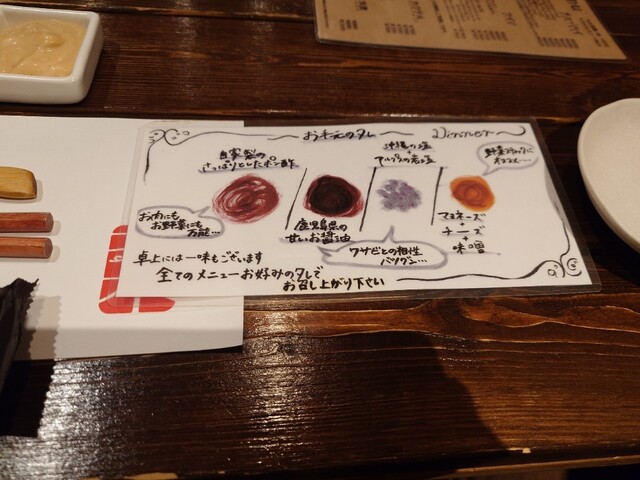 お手元のタレ
Dinner
自家製の
さっぱりとしたポン酢
お肉にも
お野菜にも
万能…
鹿児島県の
甘いお醤油
沖縄の塩
アルプスの岩塩
ワサビとの相性
バツグン…
野菜スティックに
オススメ…
マヨネーズ
+
チーズ
+
味噌
卓上には一味もございます
全てのメニューお好みのタレで
お召し上がり下さい